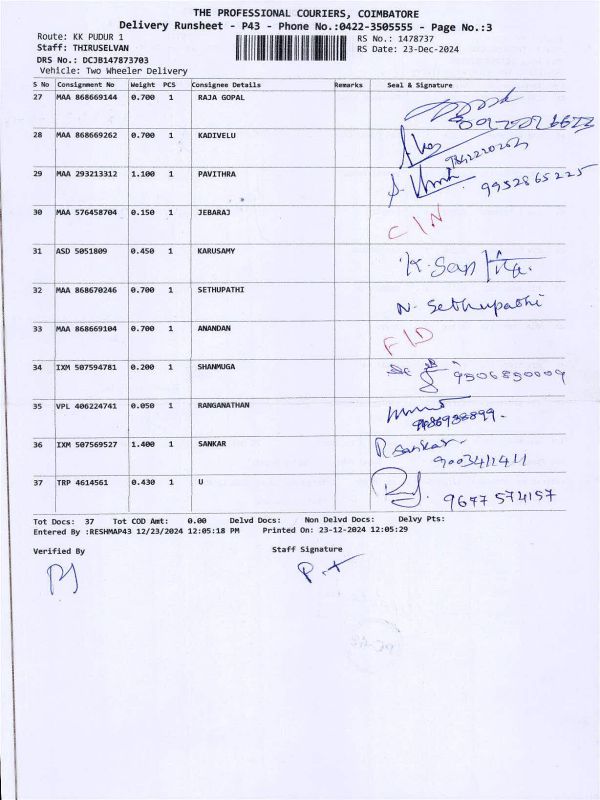 THE PROFESSIONAL COURIERS, COIMBATORE
Delivery Runsheet - P43 - Phone No.:0422-3505555 - Page No.:3
Route: KK PUDUR 1 RS No.: 1478737
Staff: THIRUSELVAN RS Date: 23-Dec-2024
DRS No.: DCJB147873703
Vehicle: Two Wheeler Delivery
S No Consignment No Weight PCS Consignee Details Remarks Seal & Signature
27 MAA 868669144 0.700 1 RAJA GOPAL
28 MAA 868669262 0.700 1 KADIVELU
29 MAA 293213312 1.100 1 PAVITHRA 9952865225
30 MAA 576458704 0.150 1 JEBARAJ C/N
31 ASD 5051809 0.450 1 KARUSAMY
32 MAA 868670246 0.700 1 SETHUPATHI N. Sethupathi
33 MAA 868669104 0.700 1 ANANDAN F/D
34 IXM 507594781 0.200 1 SHANMUGA 9506850009
35 VPL 406224741 0.050 1 RANGANATHAN
36 IXM 507569527 1.400 1 SANKAR R Sankar
37 TRP 4614561 0.430 1 U 9677 574157
Tot Docs: 37 Tot COD Amt: 0.00 Delvd Docs: Non Delvd Docs: Delvy Pts:
Entered By :RESHMAP43 12/23/2024 12:05:18 PM Printed On: 23-12-2024 12:05:29
Verified By Staff Signature